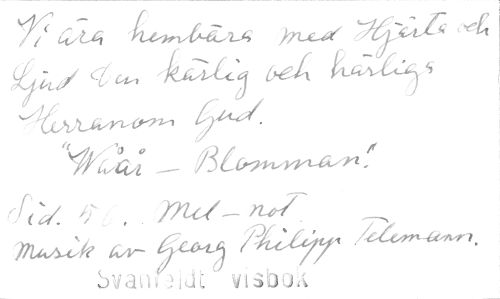 Vi ära hembära med Hjärta och
Ljud den kärlig och härliga
Herranom Gud.
"Wåår - Blomman".
Sid. Mel-not
musik av Georg Philipp Telemann.
Svanfeldt visbok